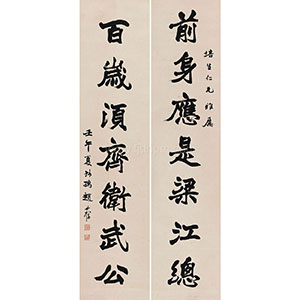 前身應是梁江總
培生仁兄雅屬
百歲須齊衛武公
壬午夏